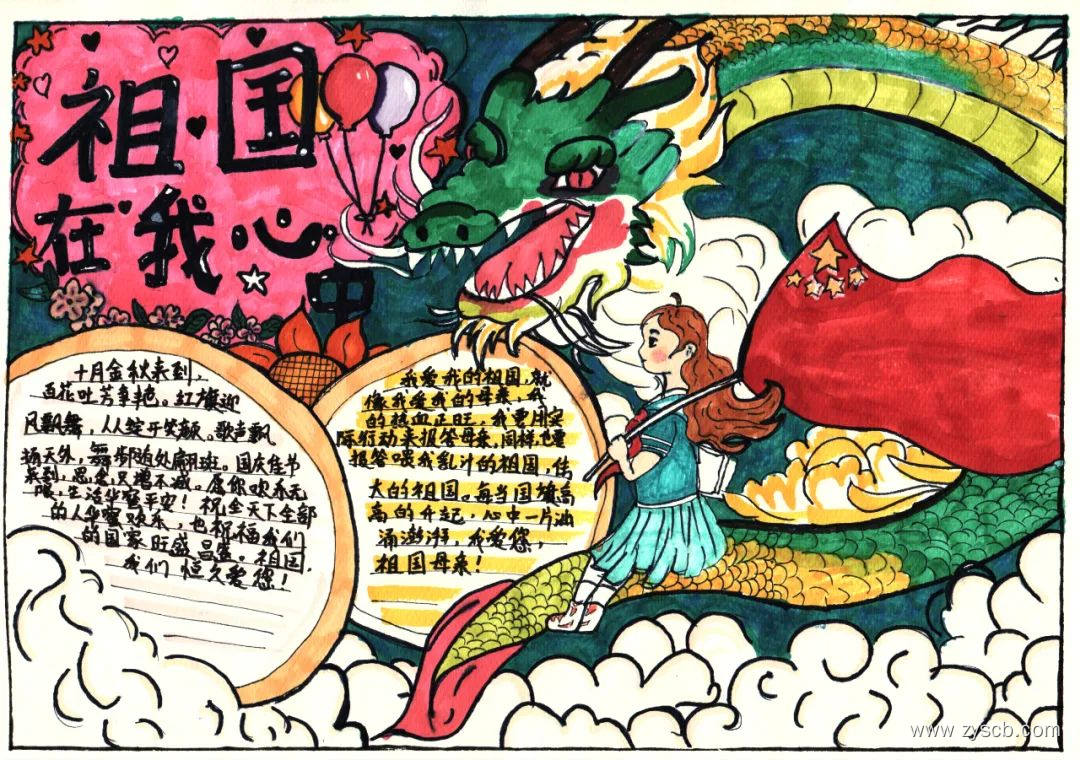 祖国
在我心
中
十月金秋来到，
百花吐芳享艳。红旗迎
风飘舞，人人绽开笑颜。歌声飘
扬天外，舞步随处翩跹。国庆佳节
来到，思念只增不减。愿你欢乐无
限，生活华蜜平安！祝全天下全部
的人华蜜欢乐，也祝福我们
的国家旺盛昌盛。祖国，
我们恒久爱您！
我爱我的祖国，就
像我爱我的母亲，我
的热血正旺，我要用实
际行动来报答母亲，同样也要
报答喂我乳汁的祖国，伟
大的祖国。每当国旗高
高的升起，心中一片汹
涌澎湃，我爱您，
祖国母亲！
www.zyscb.com